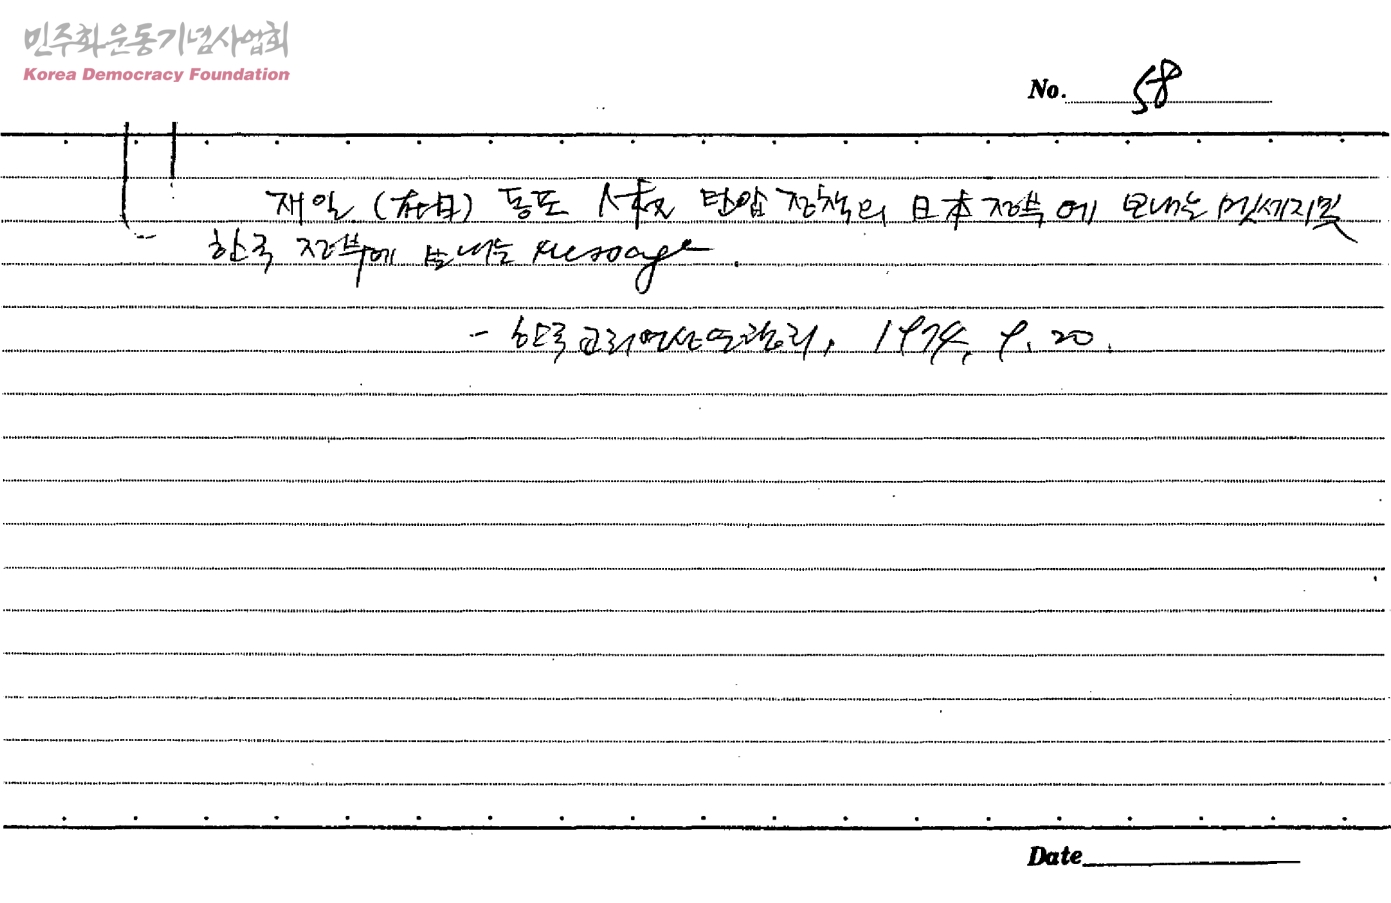 민주화운동기념사업회
Korea Democracy Foundation
No. 58
재일 (在日) 동포 탄압 정책의 日本 정부에 보내는 멧세지 및
한국 정부에 보내는 message.
- 한국교회여성연합회, 1974. 9. 20.
Date